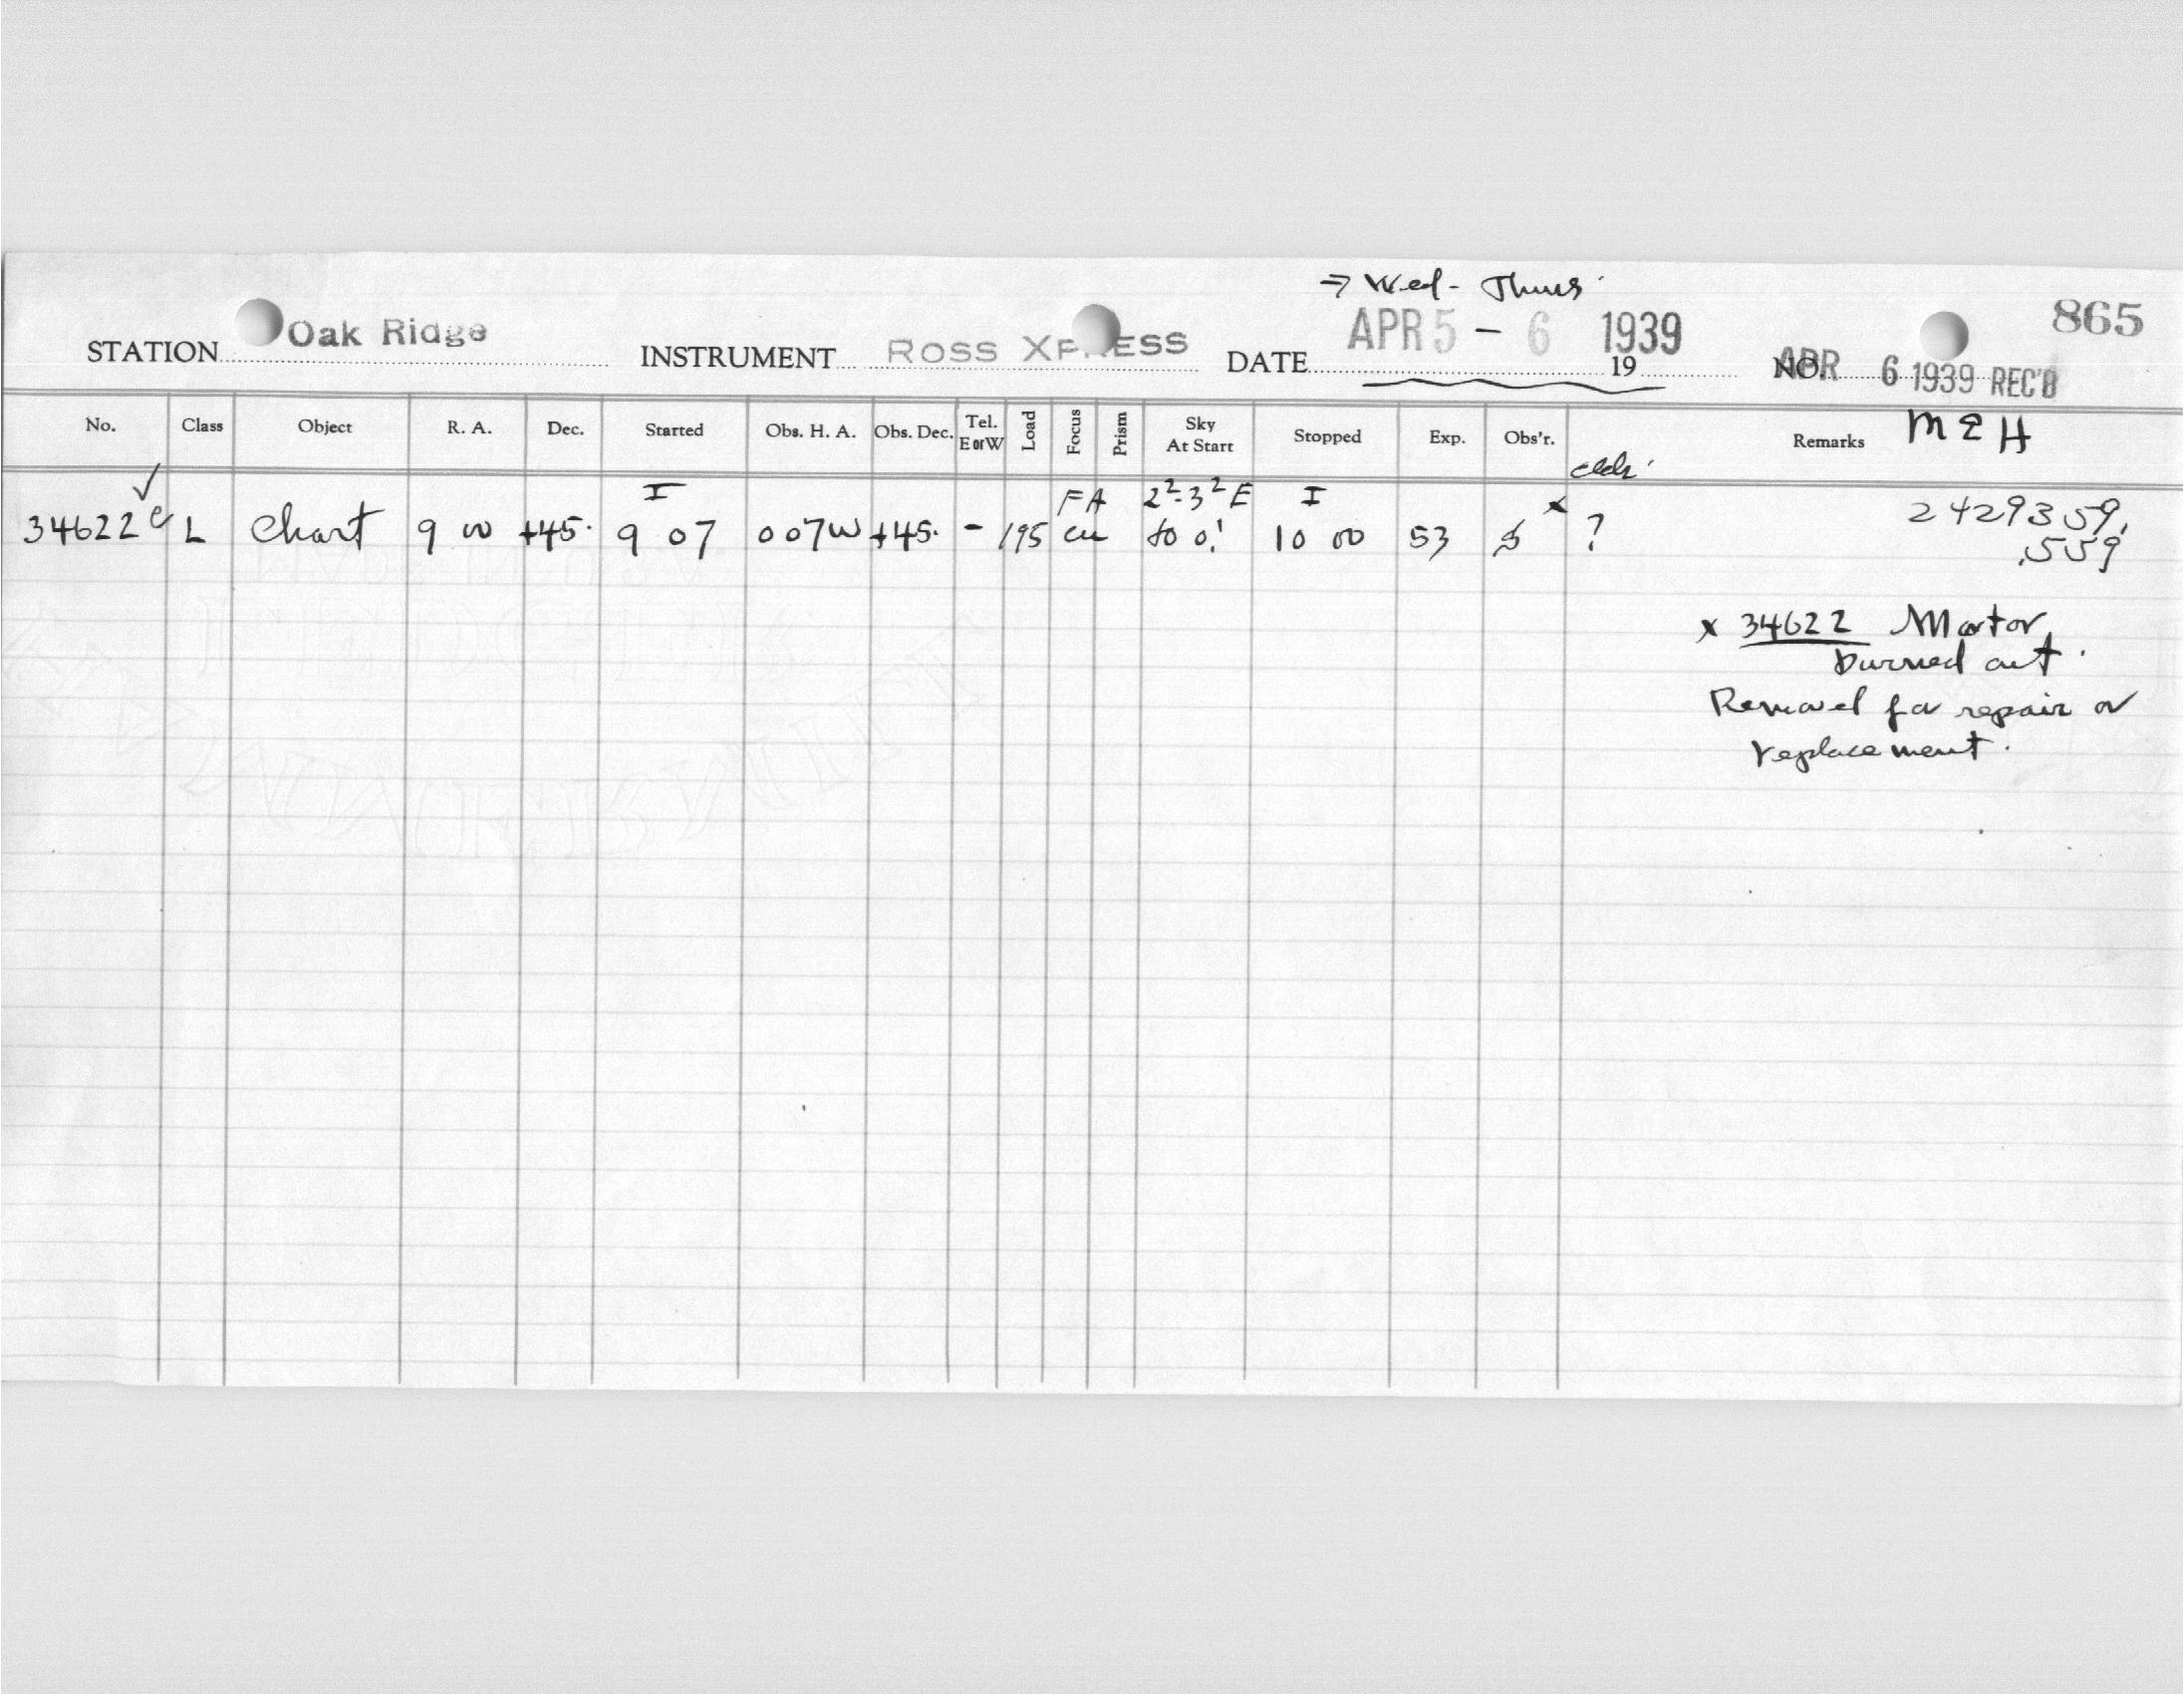 → Wed - Thurs.
STATION Oak Ridge INSTRUMENT ROSS XPRESS DATE APR 5 - 6 1939 19 NO. APR 6 1939 REC'D 865
No. Class Object R. A. Dec. Started Obs. H. A. Obs. Dec. Tel. E or W Load Focus Prism Sky At Start Stopped Exp. Obs'r. Remarks M E H
✓ I FA 2²-3²E I x 2429359.
34622 e L Chart 9 00 +45. 9 07 0 07W +45. - 195 cu to 0! 10 00 53 ? .559
x 34622 Mortor
burned out.
Removed for repair or
replacement.